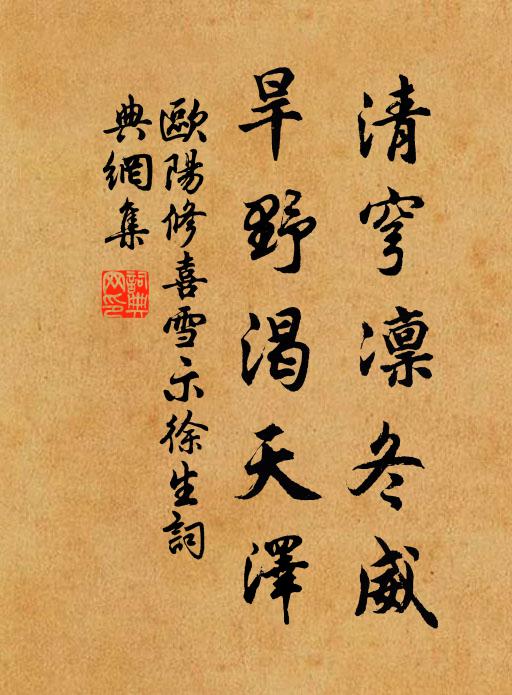 清穹凜冬威
旱野渴天澤
歐陽修喜雪示徐生詞
典網集
詞典網印